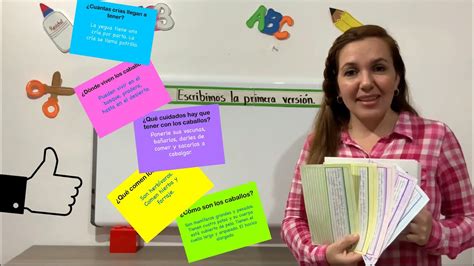 ¿Cuántas crías llegan a
tener?
La yegua tiene una
cría por parto. La
cría se llama potrillo.
ABC
¿Dónde viven los caballos?
Pueden vivir en el
bosque, pradera,
hasta en el desierto.
Escribimos la primera versión.
¿Qué cuidados hay que
tener con los caballos?
Ponerle sus vacunas,
bañarlos, darles de
comer y sacarlos a
cabalgar.
¿Qué comen los
Son herbívoros.
Comen hierba y
forraje.
¿Cómo son los caballos?
Son mamíferos grandes y pesados.
Tienen cuatro patas y su cuerpo
está cubierto de pelo. Tienen el
cuello largo y arqueado. El hocico
alargado.